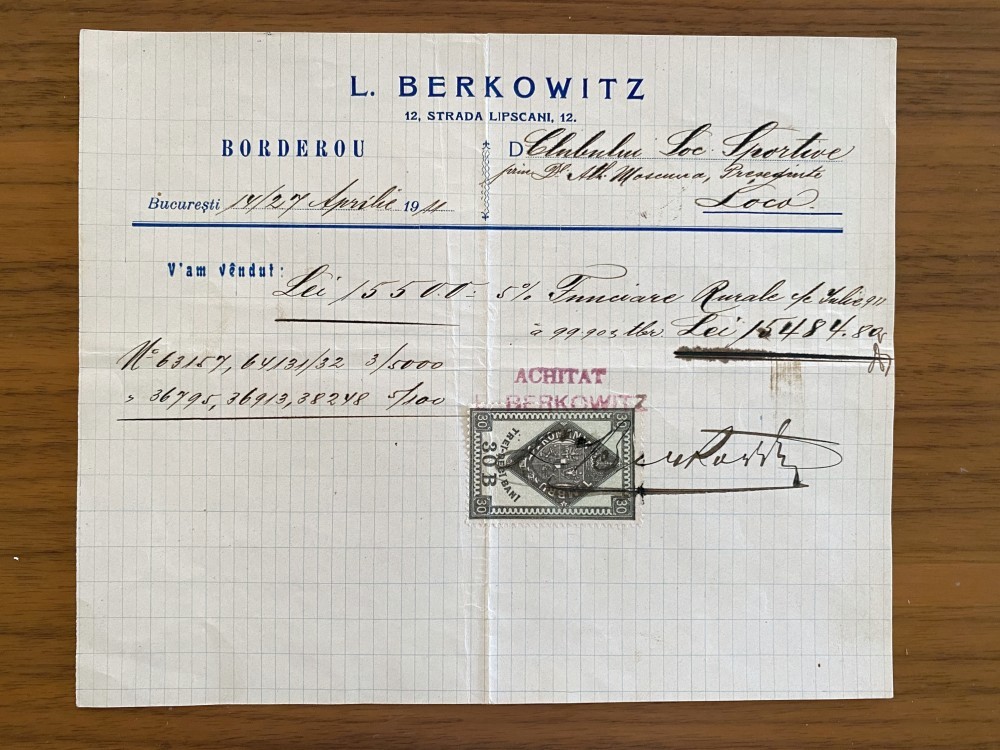 L. BERKOWITZ
12, STRADA LIPSCANI, 12.
BORDEROU
D Clubului Soc. Sportive
prin Dl. Alh. Moscuna, Preşeginte
Bucureşti 14/27 Aprilie 1911
Loco.
V'am vêndut:
Lei 15500= 5% Funciare Rurale c/c Iulie 911
à 99.903 tbr. Lei 15484.80
No 63157, 64131/32 3/5000
" 36795, 36913, 38248 5/100
ACHITAT
L. BERKOWITZ
30 30
TREI-ZECI BANI
30 B
TIMBRU
30 30